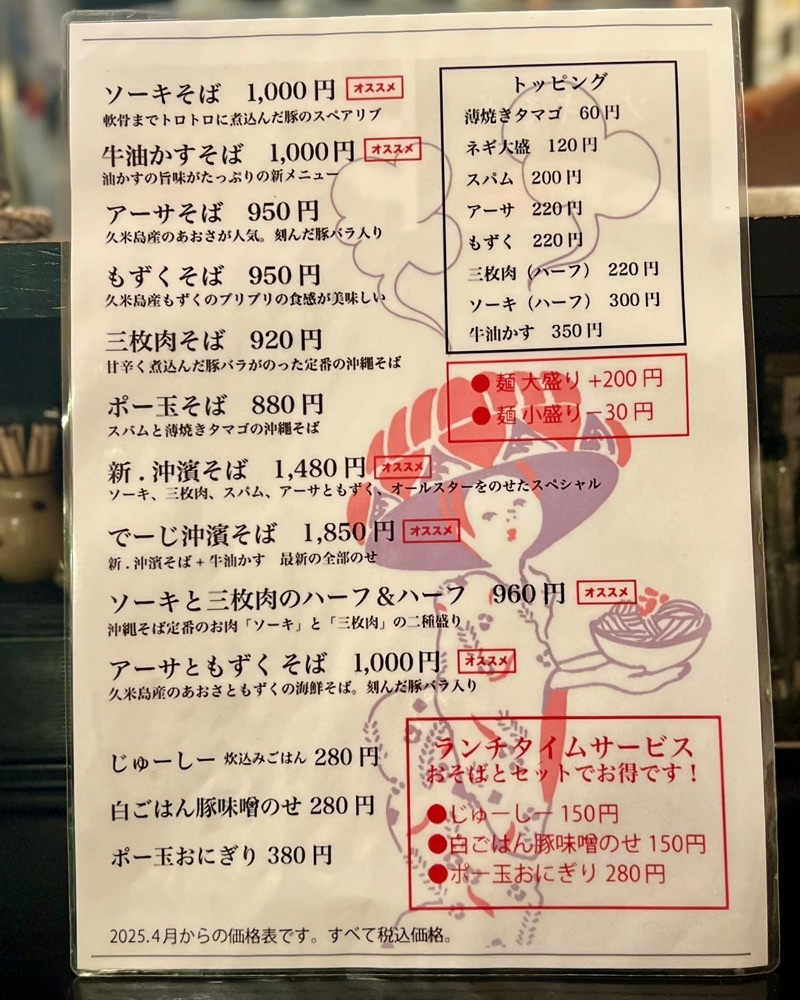 ソーキそば 1,000円 オススメ
軟骨までトロトロに煮込んだ豚のスペアリブ
牛油かすそば 1,000円 オススメ
油かすの旨味がたっぷりの新メニュー
アーサそば 950円
久米島産のあおさが人気。刻んだ豚バラ入り
もずくそば 950円
久米島産もずくのプリプリの食感が美味しい
三枚肉そば 920円
甘辛く煮込んだ豚バラがのった定番の沖縄そば
ポー玉そば 880円
スパムと薄焼きタマゴの沖縄そば
新.沖濱そば 1,480円 オススメ
ソーキ、三枚肉、スパム、アーサともずく、オールスターをのせたスペシャル
でーじ沖濱そば 1,850円 オススメ
新.沖濱そば+牛油かす 最新の全部のせ
ソーキと三枚肉のハーフ&ハーフ 960円 オススメ
沖縄そば定番のお肉「ソーキ」と「三枚肉」の二種盛り
アーサともずくそば 1,000円 オススメ
久米島産のあおさともずくの海鮮そば。刻んだ豚バラ入り
じゅーしー 炊込みごはん 280円
白ごはん豚味噌のせ 280円
ポー玉おにぎり 380円
トッピング
薄焼きタマゴ 60円
ネギ大盛 120円
スパム 200円
アーサ 220円
もずく 220円
三枚肉（ハーフ） 220円
ソーキ（ハーフ） 300円
牛油かす 350円
●麺 大盛り +200円
●麺 小盛り －30円
ランチタイムサービス
おそばとセットでお得です！
●じゅーしー 150円
●白ごはん豚味噌のせ 150円
●ポー玉おにぎり 280円
2025.4月からの価格表です。すべて税込価格。